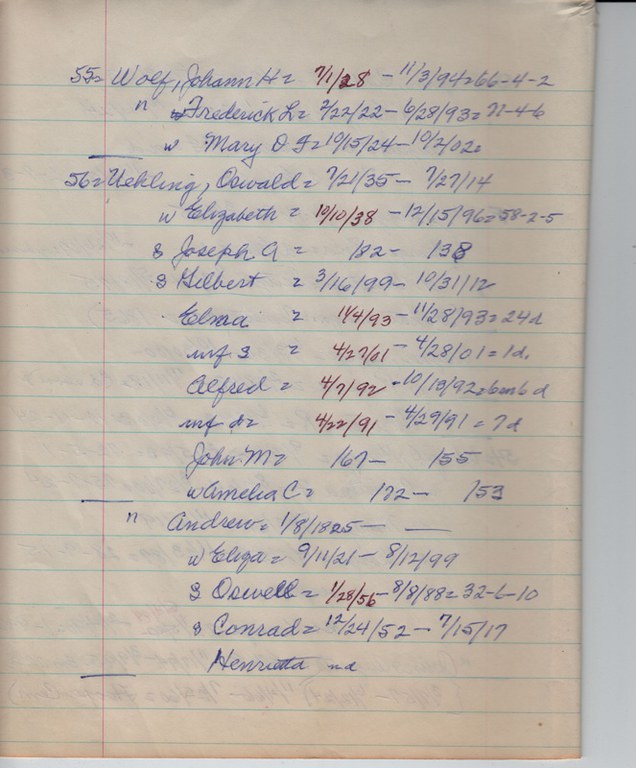 55= Wolf, Johann H = 7/1/28 - 11/3/94=66-4-2
n Frederick L= 2/22/22 - 6/28/93= 71-4-6
w Mary D F=10/15/24-10/2/02=
56= Uehling, Oswald = 7/21/35 - 7/27/14
w Elizabeth = 10/10/38 - 12/15/96=58-2-5
s Joseph A = 182- 138
s Hilbert = 3/16/99- 10/31/12
Elma = 11/4/93 - 11/28/93= 24d
inf s = 4/27/01 - 4/28/01 = 1d.
Alfred = 4/7/92 - 10/13/92=6m6d
inf d= 4/22/91 - 4/29/91 = 7d
John M= 167- 155
w Amelia C= 172- 153
n Andrew= 1/8/1825 - -
w Eliza = 9/11/21 - 8/12/99
s Oswell = 1/28/56 - 8/8/88= 32-6-10
s Conrad = 12/24/52 - 7/15/17
Henrietta nd